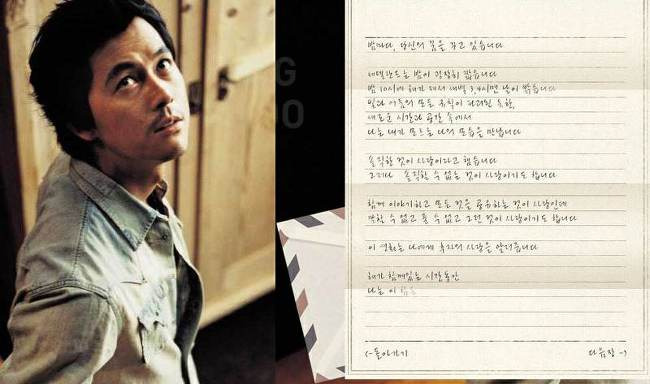 G
O
밤마다, 당신의 꿈을 꾸고 있습니다
네덜란드는 밤이 굉장히 짧습니다
밤 10시에 해가 져서 새벽 3,4시면 날이 밝습니다
빛과 어둠의 모든 규칙이 파괴된 듯한,
새로운 시간과 공간 속에서
나는 내가 모르는 나의 모습을 만납니다
솔직한 것이 사랑이라고 했습니다
그러나 솔직할 수 없는 것이 사랑이기도 합니다
함께 이야기하고 모든 것을 공유하는 것이 사랑인데
말할 수 없고 줄 수 없고 그런 것이 사랑이기도 합니다
이 영화는 나에게 후자의 사랑을 알려줍니다
해가 함께있는 시간동안
나는 이
<-돌아가기
다음장->